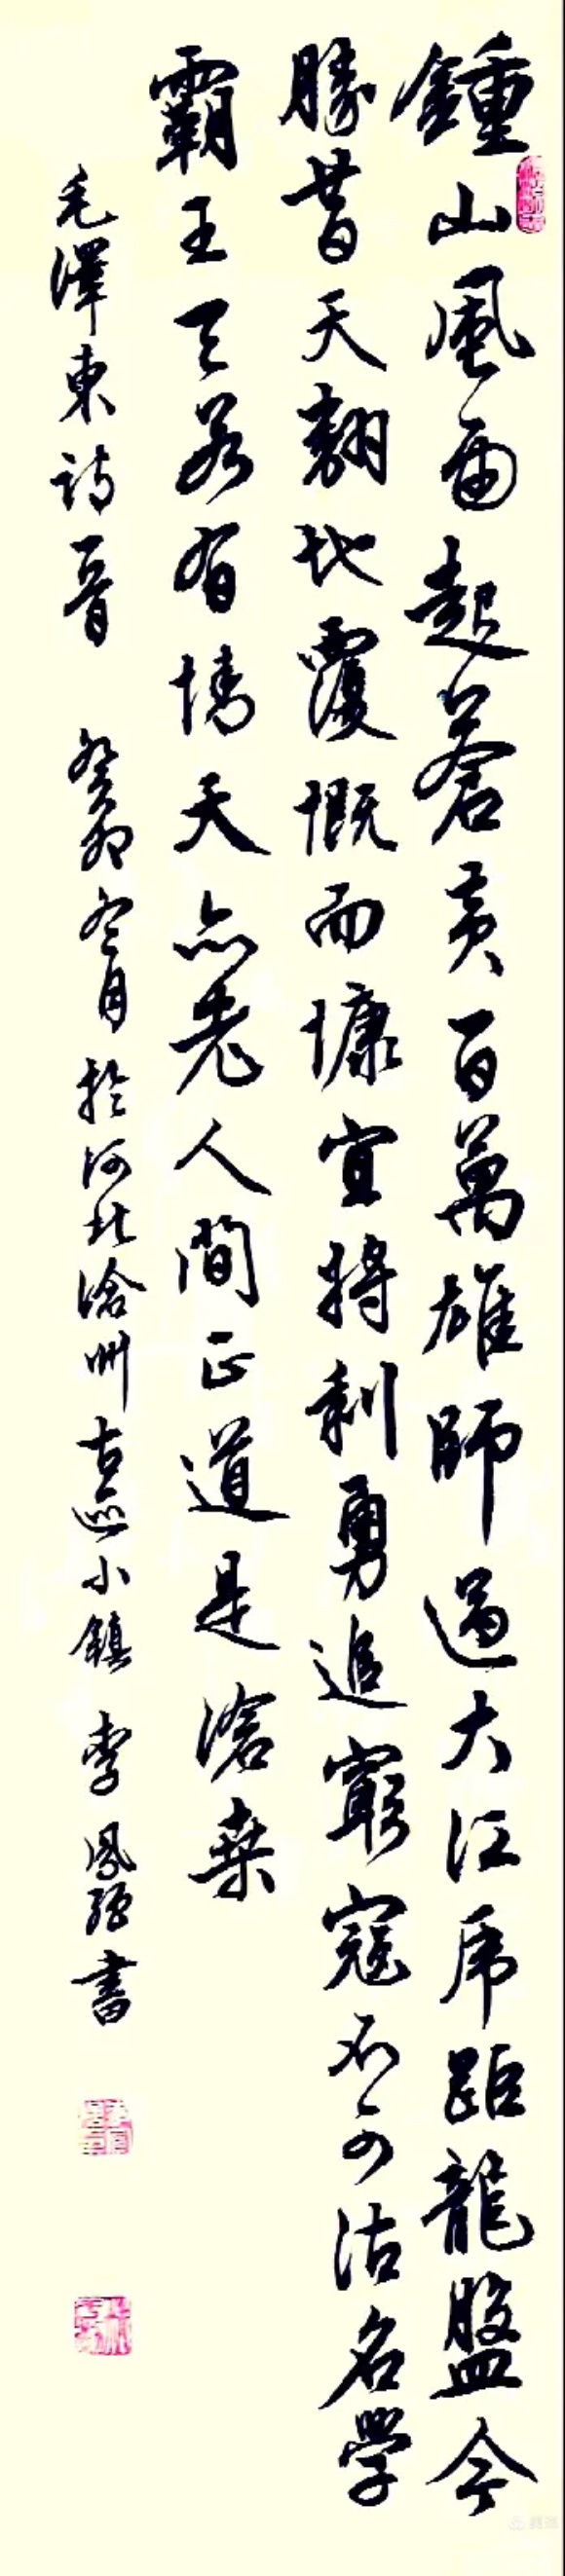 鍾山風雨起蒼黃百萬雄師過大江虎距龍盤今
勝昔天翻地覆慨而慷宜將利勇追窮寇不可沽名學
霸王天若有情天亦老人間正道是滄桑
毛澤東詩一首 癸卯冬月於河北滄州古巡小鎮 李鳳強書